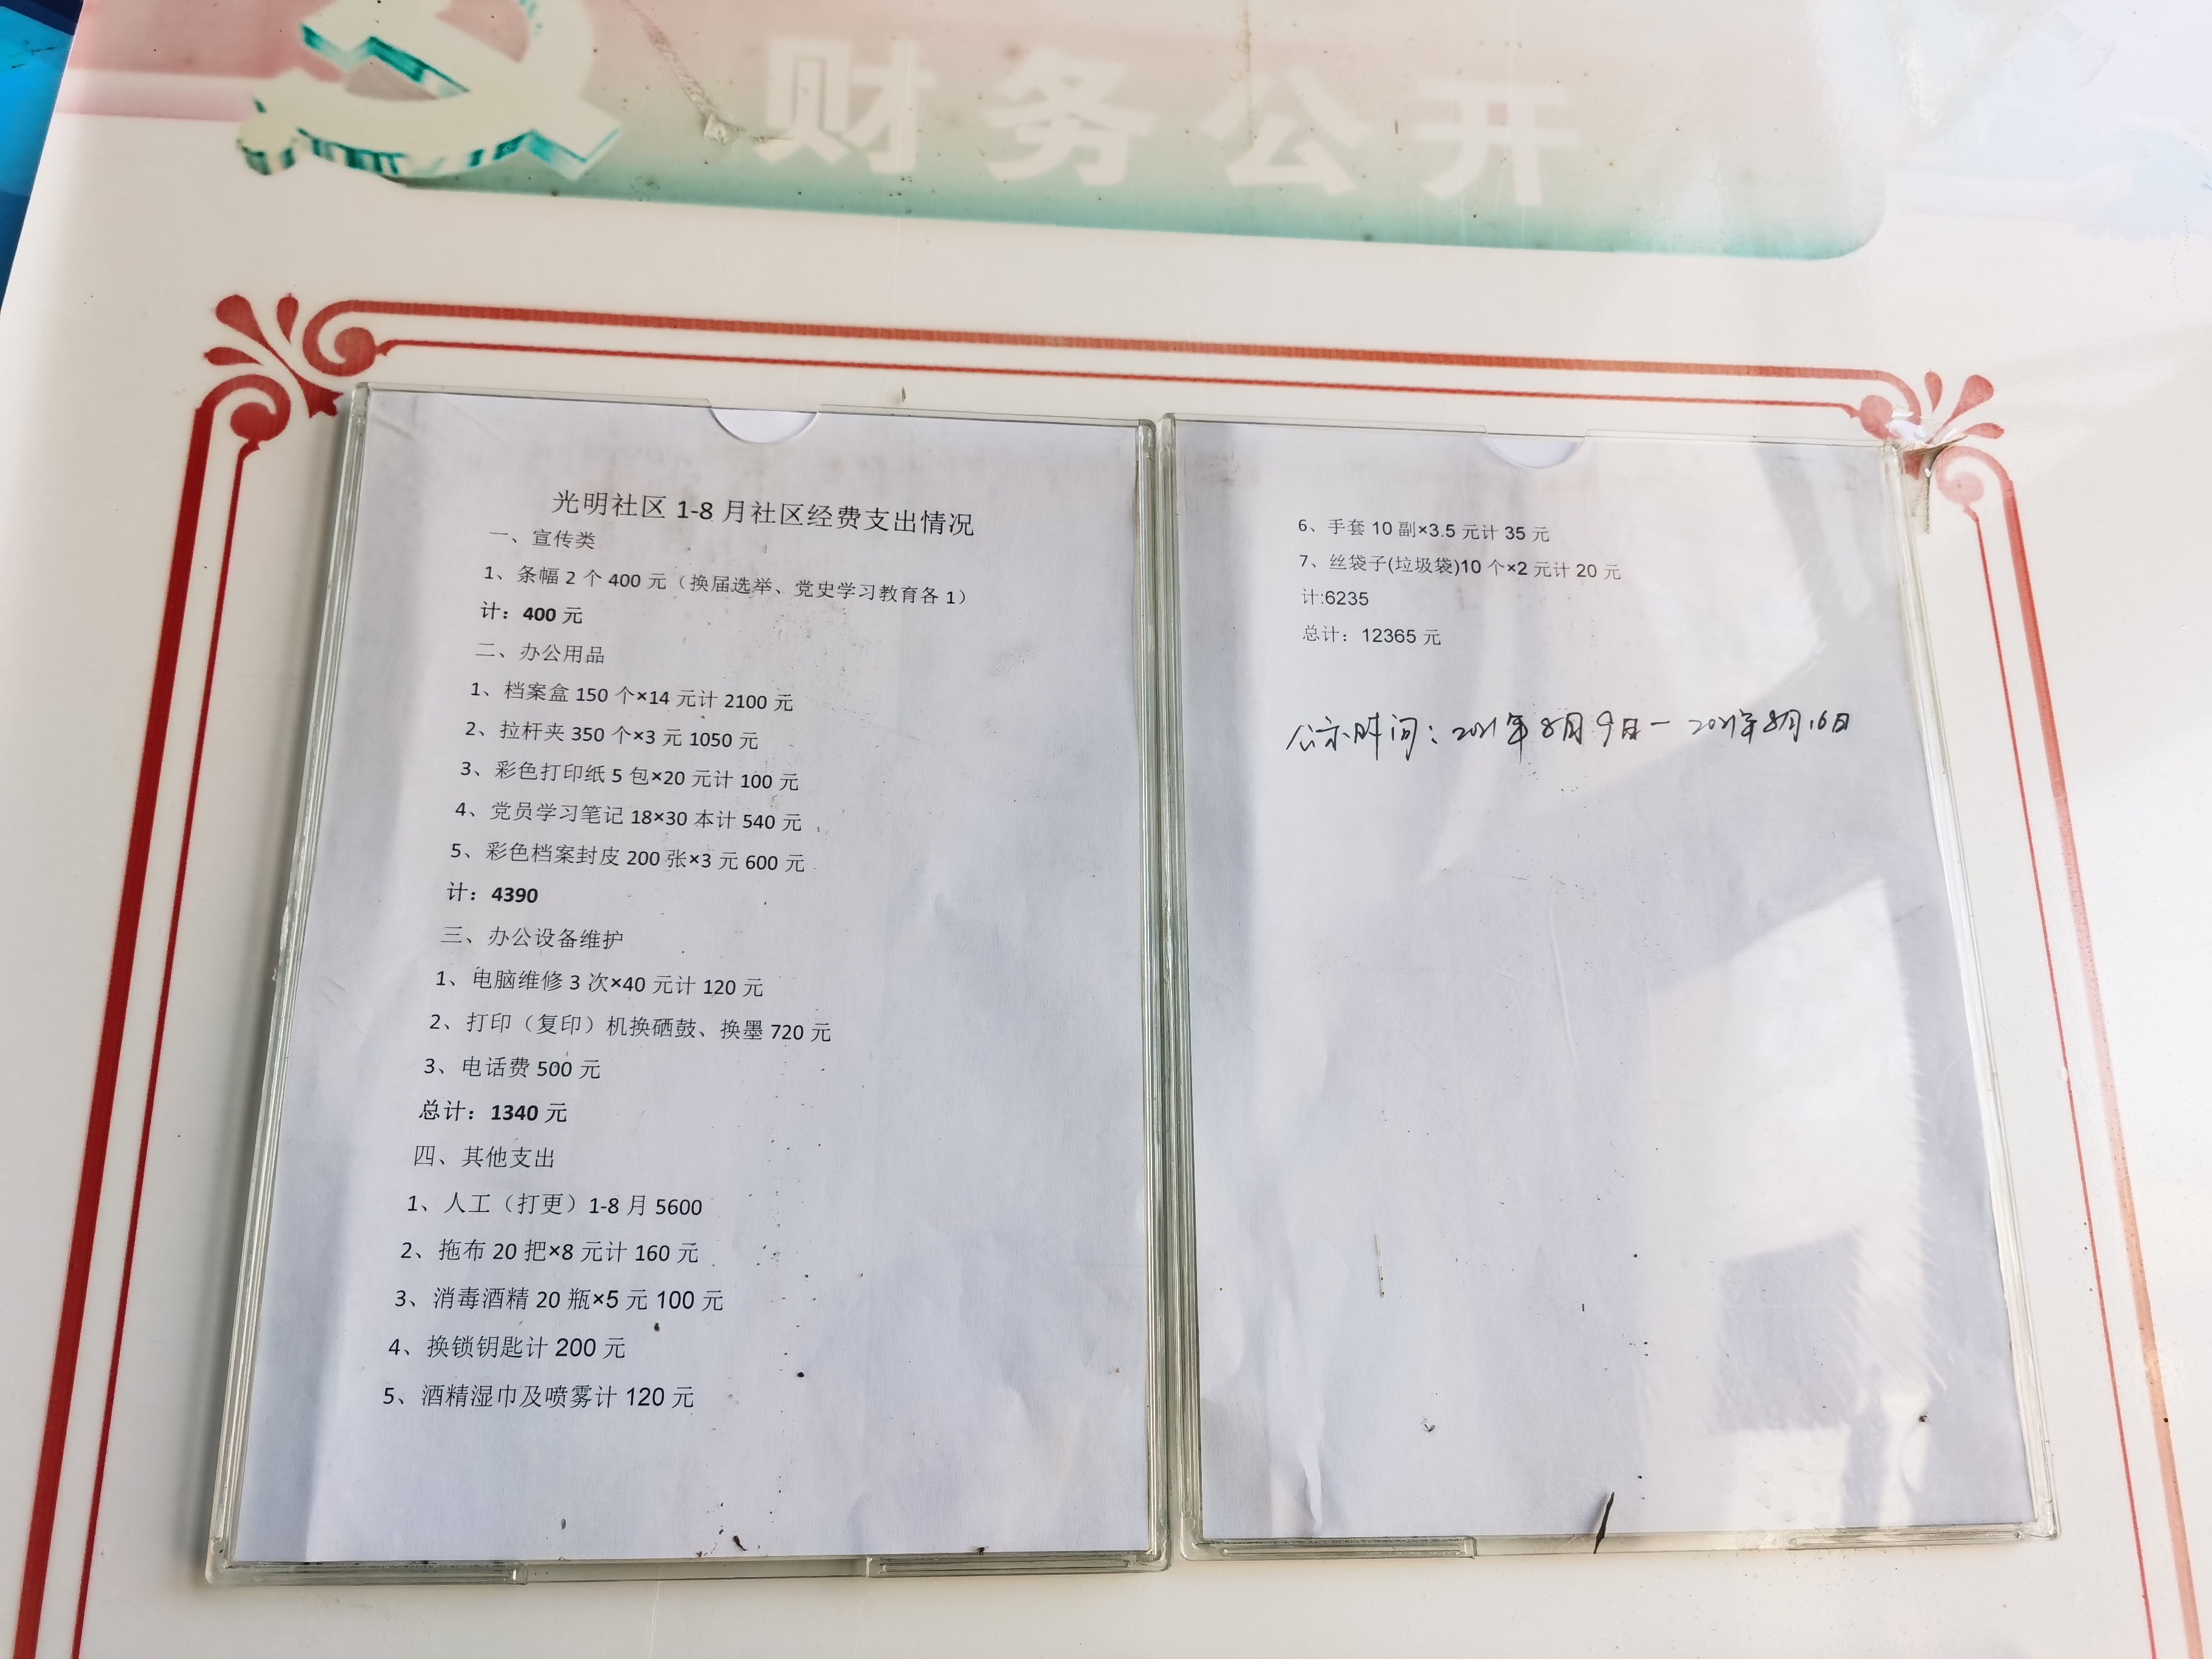 财务公开
光明社区 1-8 月社区经费支出情况
一、宣传类
1、条幅 2 个 400 元（换届选举、党史学习教育各 1）
计：400 元
二、办公用品
1、档案盒 150 个×14 元计 2100 元
2、拉杆夹 350 个×3 元 1050 元
3、彩色打印纸 5 包×20 元计 100 元
4、党员学习笔记 18×30 本计 540 元
5、彩色档案封皮 200 张×3 元 600 元
计：4390
三、办公设备维护
1、电脑维修 3 次×40 元计 120 元
2、打印（复印）机换硒鼓、换墨 720 元
3、电话费 500 元
总计：1340 元
四、其他支出
1、人工（打更）1-8 月 5600
2、拖布 20 把×8 元计 160 元
3、消毒酒精 20 瓶×5 元 100 元
4、换锁钥匙计 200 元
5、酒精湿巾及喷雾计 120 元
6、手套 10 副×3.5 元计 35 元
7、丝袋子(垃圾袋)10 个×2 元计 20 元
计:6235
总计：12365 元
公示时间：2021年8月9日－2021年8月16日